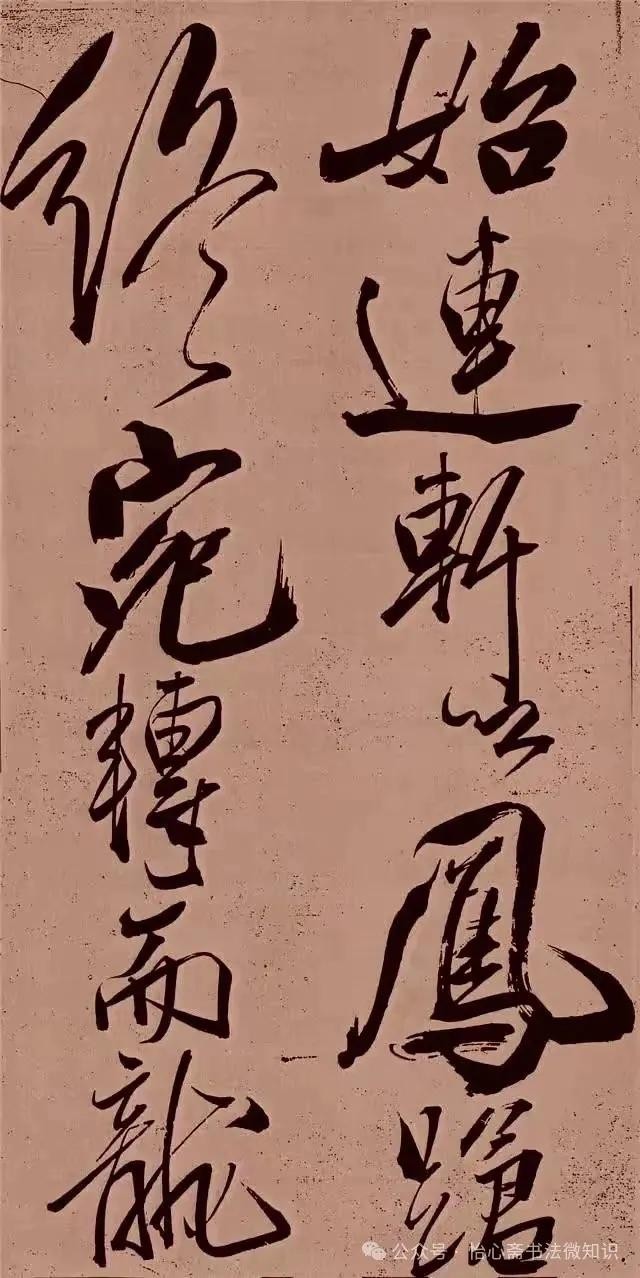 始連軒以鳳蹌
終宛轉而龍
公众号·怡心斋书法微知识